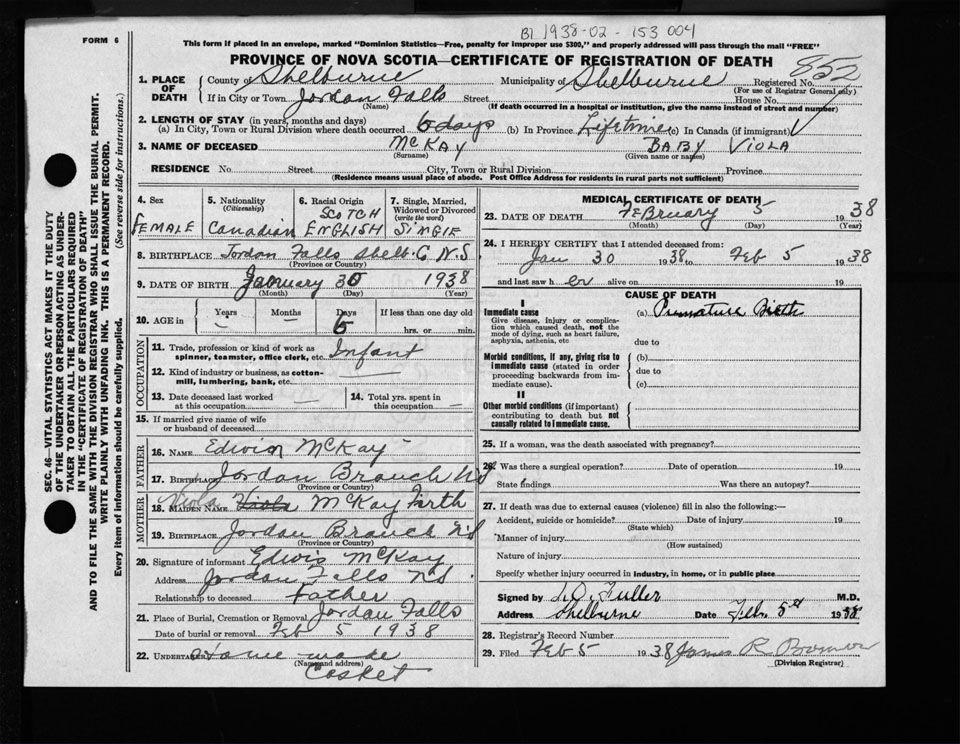 B1 1938-02-153 004
FORM 6
This form if placed in an envelope, marked "Dominion Statistics—Free, penalty for improper use $300," and properly addressed will pass through the mail "FREE"
PROVINCE OF NOVA SCOTIA—CERTIFICATE OF REGISTRATION OF DEATH
852
1. PLACE OF DEATH
County of Shelburne Municipality of Shelburne Registered No.
(For use of Registrar General only)
If in City or Town Jordan Falls Street House No.
(Name) (If death occurred in a hospital or institution, give the name instead of street and number)
2. LENGTH OF STAY (in years, months and days)
(a) In City, Town or Rural Division where death occurred 6 days (b) In Province Lifetime (c) In Canada (if immigrant)
3. NAME OF DECEASED McKAY BABY VIOLA
(Surname) (Given name or names)
RESIDENCE No. Street City, Town or Rural Division Province
(Residence means usual place of abode. Post Office Address for residents in rural parts not sufficient)
4. Sex
FEMALE
5. Nationality
(Citizenship)
Canadian
6. Racial Origin
SCOTCH
ENGLISH
7. Single, Married, Widowed or Divorced
(write the word)
SINGLE
8. BIRTHPLACE Jordan Falls Shelb. C N.S.
(Province or Country)
9. DATE OF BIRTH 30 1938
(Month) (Day) (Year)
10. AGE in
Years Months Days If less than one day old
— — 6 hrs. or min.
OCCUPATION
11. Trade, profession or kind of work as spinner, teamster, office clerk, etc. Infant
12. Kind of industry or business, as cotton-mill, lumbering, bank, etc.
13. Date deceased last worked at this occupation —
14. Total yrs. spent in this occupation —
15. If married give name of wife or husband of deceased
FATHER
16. NAME Edwin McKay
17. BIRTHPLACE Jordan Branch NS
(Province or Country)
MOTHER
18. MAIDEN NAME Viola McKay Firth
19. BIRTHPLACE Jordan Branch NS
(Province or Country)
20. Signature of informant Edwin McKay
Address Jordan Falls N.S.
Relationship to deceased father
21. Place of Burial, Cremation or Removal Jordan Falls
Date of burial or removal Feb 5 1938
22. UNDERTAKER Home made
(Name and address)
Casket
MEDICAL CERTIFICATE OF DEATH
23. DATE OF DEATH FEBruary 5 1938
(Month) (Day) (Year)
24. I HEREBY CERTIFY that I attended deceased from:
Jan 30 1938 to Feb 5 1938
and last saw h er alive on 19
CAUSE OF DEATH
I
Immediate cause
Give disease, injury or complication which caused death, not the mode of dying, such as heart failure, asphyxia, asthenia, etc
(a) Premature Birth
due to
Morbid conditions, if any, giving rise to immediate cause (stated in order proceeding backwards from immediate cause).
(b)
due to
(c)
II
Other morbid conditions (if important) contributing to death but not causally related to immediate cause.
25. If a woman, was the death associated with pregnancy?
26. Was there a surgical operation? Date of operation 19
State findings Was there an autopsy?
27. If death was due to external causes (violence) fill in also the following:—
Accident, suicide or homicide? Date of injury 19
(State which)
Manner of injury
(How sustained)
Nature of injury
Specify whether injury occurred in industry, in home, or in public place
Signed by Fuller M.D.
Address Shelburne Date Feb. 5th 1938
28. Registrar's Record Number
29. Filed Feb 5 1938 James R
(Division Registrar)
SEC. 46—VITAL STATISTICS ACT MAKES IT THE DUTY
OF THE UNDERTAKER OR PERSON ACTING AS UNDERTAKER
TO OBTAIN ALL THE PARTICULARS REQUIRED
IN THE "CERTIFICATE OF REGISTRATION OF DEATH"
AND TO FILE THE SAME WITH THE DIVISION REGISTRAR WHO SHALL ISSUE THE BURIAL PERMIT.
WRITE PLAINLY WITH UNFADING INK. THIS IS A PERMANENT RECORD.
Every item of information should be carefully supplied. (See reverse side for instructions.)